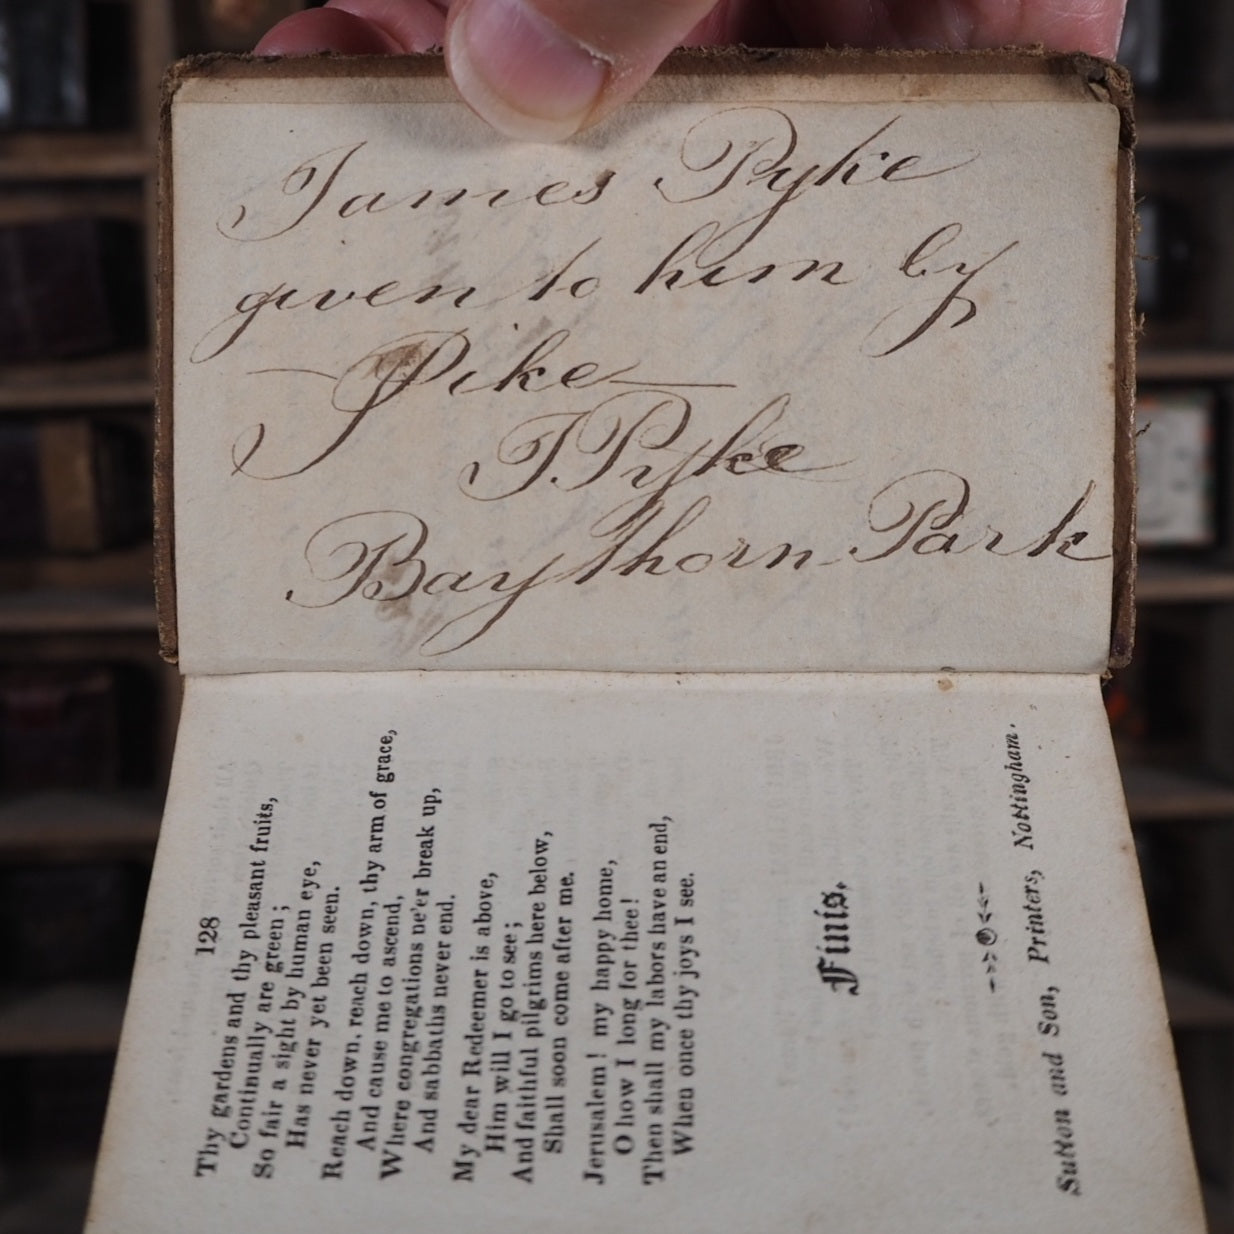 James Pyke
given to him by
— Pike —
J. Pyke
Baythorn Park
128
Thy gardens and thy pleasant fruits,
Continually are green;
So fair a sight by human eye,
Has never yet been seen.
Reach down, reach down, thy arm of grace,
And cause me to ascend,
Where congregations ne'er break up,
And sabbaths never end.
My dear Redeemer is above,
Him will I go to see;
And faithful pilgrims here below,
Shall soon come after me.
Jerusalem! my happy home,
O how I long for thee!
Then shall my labors have an end,
When once thy joys I see.
Finis.
Sutton and Son, Printers, Nottingham.